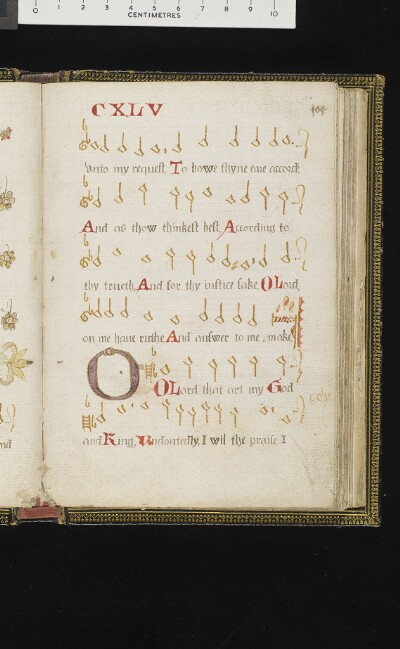 0 1 2 3 4 5 6 7 8 9 10
CENTIMETRES
CXLV
Vnto my request To bowe thyne eare accord
And as thow thinkest best According to
thy trueth And for thy iustice sake O Lord
on me haue ruthe And answer to me, make
O O Lord that art my God
and King, Undoutedly, I wil the praise I
nd